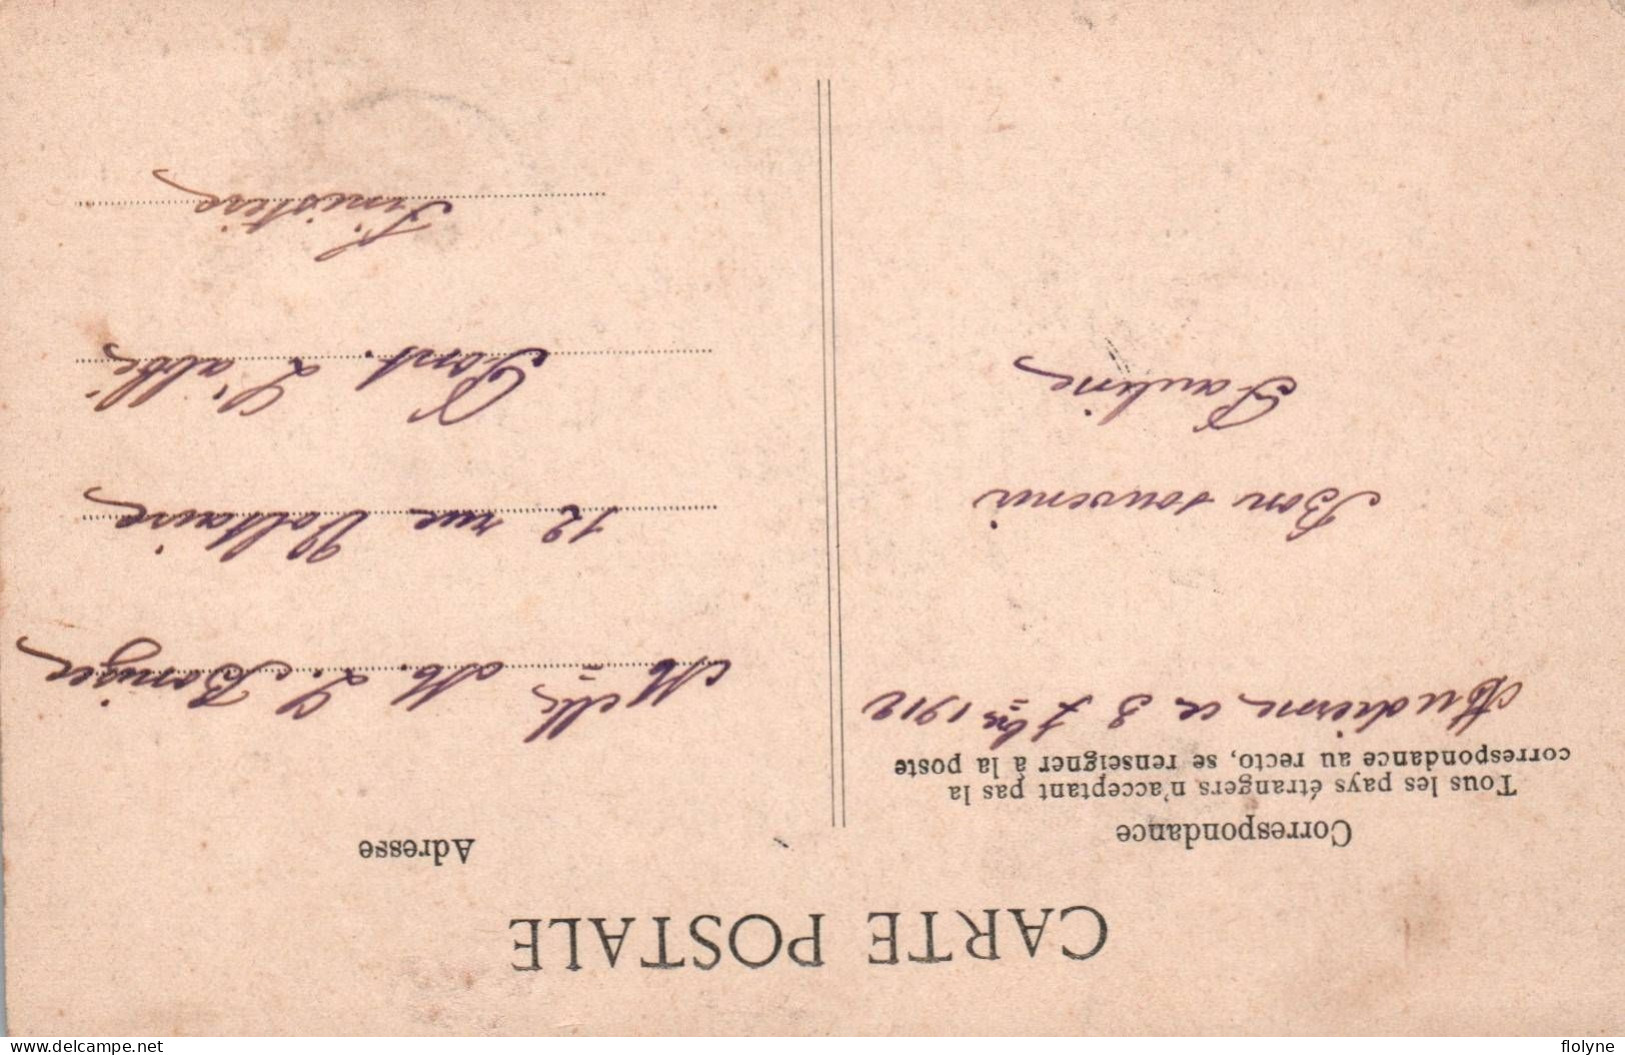 CARTE POSTALE
Correspondance
Tous les pays étrangers n'acceptant pas la
correspondance au recto, se renseigner à la poste
Audierne ce 3 7bre 1912
Bon souvenir
Pauline
Adresse
Melle M. L.
12 rue Voltaire
Pont. L'abbé
Finistère
www.delcampe.net
flolyne